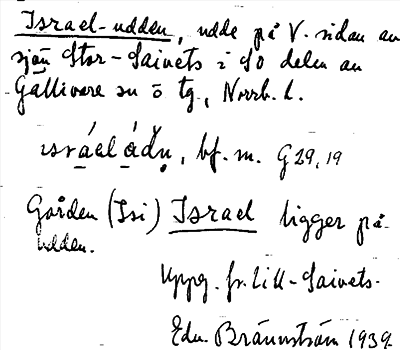 Israel-udden, udde på V. sidan av
sjön Stor-Saivets i SO delen av
Gällivare sn o tg., Norrb. l.
ısráel ádu, bf. m. G 29, 19
Gården (Isi) Israel ligger på
udden.
Uppg. fr. Lill-Saivets.
Edv. Brännström 1939.